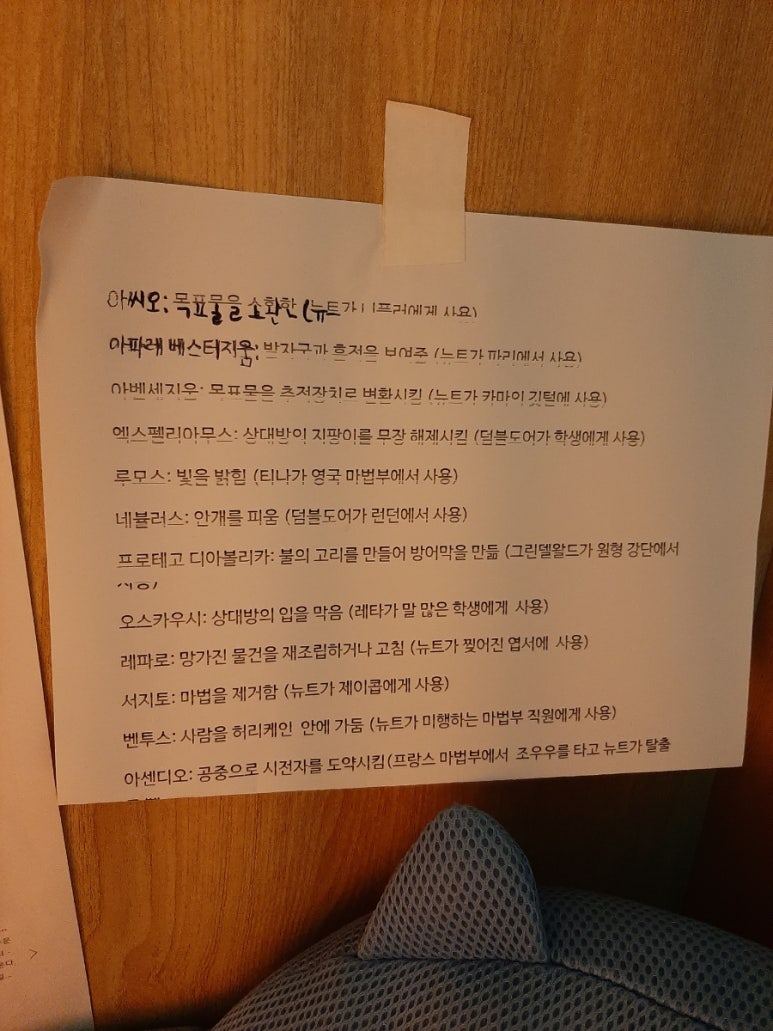 아씨오: 목표물을 소환한 (뉴트가 니플러에게 사용)
아파레 베스티지움: 발자국과 흔적을 보여준 (뉴트가 파리에서 사용)
아벤세지운: 목표물을 추적장치로 변환시킴 (뉴트가 카마의 깃털에 사용)
엑스펠리아무스: 상대방의 지팡이를 무장 해제시킴 (덤블도어가 학생에게 사용)
루모스: 빛을 밝힘 (티나가 영국 마법부에서 사용)
네뷸러스: 안개를 피움 (덤블도어가 런던에서 사용)
프로테고 디아볼리카: 불의 고리를 만들어 방어막을 만듦 (그린델왈드가 원형 강단에서
사용)
오스카우시: 상대방의 입을 막음 (레타가 말 많은 학생에게 사용)
레파로: 망가진 물건을 재조립하거나 고침 (뉴트가 찢어진 엽서에 사용)
서지토: 마법을 제거함 (뉴트가 제이콥에게 사용)
벤투스: 사람을 허리케인 안에 가둠 (뉴트가 미행하는 마법부 직원에게 사용)
아센디오: 공중으로 시전자를 도약시킴(프랑스 마법부에서 조우우를 타고 뉴트가 탈출